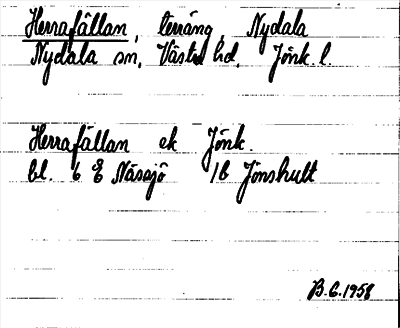 Herrafällan, terräng, Nydala
Nydala sn, Västra hd, Jönk. l.
Herrafällan ek Jönk.
bl. 6 E Nässjö 1b Jönshult
B.G. 1958